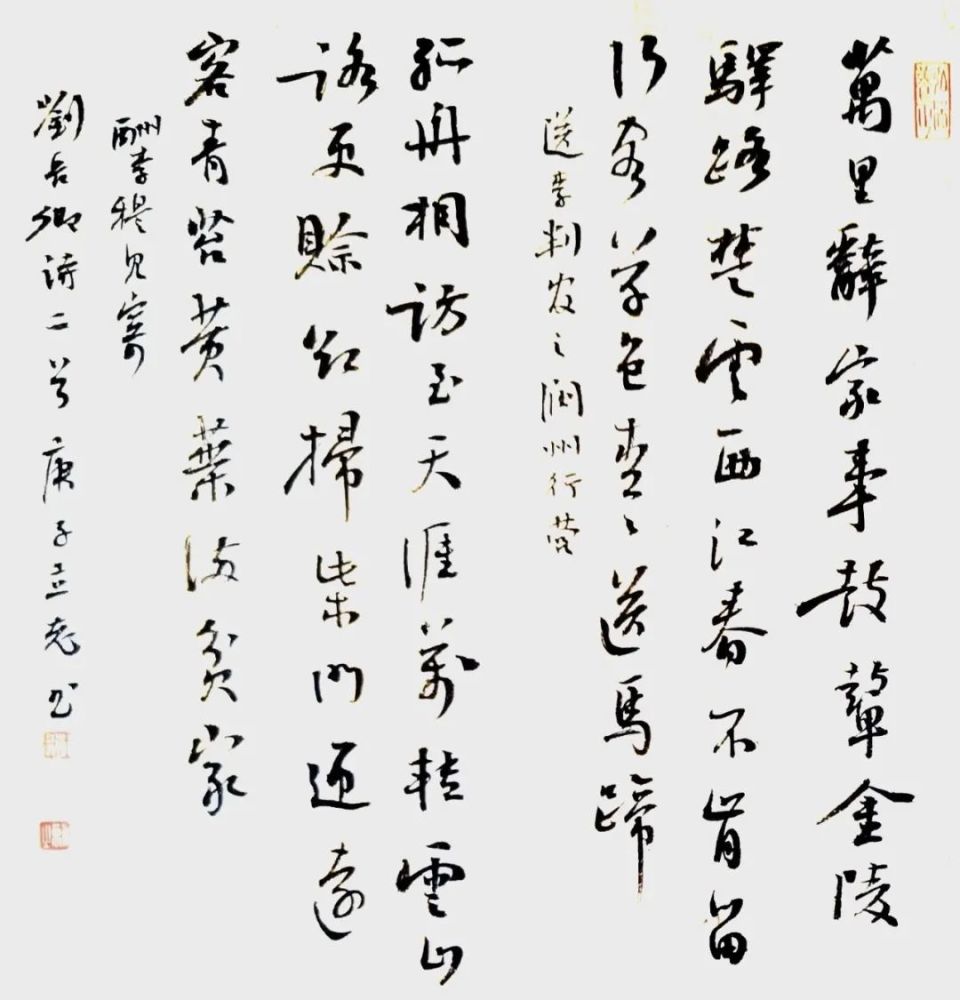 萬里辭家事鼓鼙金陵
驛路楚雲西江春不肯留
行客草色青〻送馬蹄
送李判官之潤州行營
孤舟相訪至天涯萬轉雲山
路更賒欲掃柴門迎遠
客青苔黃葉滿貧家
酬李穆見寄
劉長卿詩二首庚子书